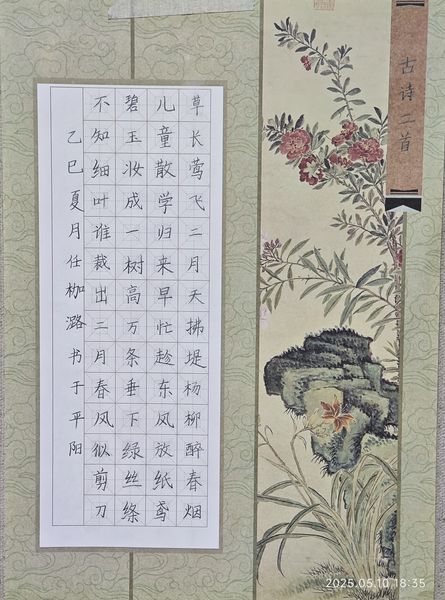 古诗二首
草长莺飞二月天拂堤杨柳醉春烟
儿童散学归来早忙趁东风放纸鸢
碧玉妆成一树高万条垂下绿丝绦
不知细叶谁裁出二月春风似剪刀
乙巳夏月任枷潞书于平阳
2025.05.10 18:35